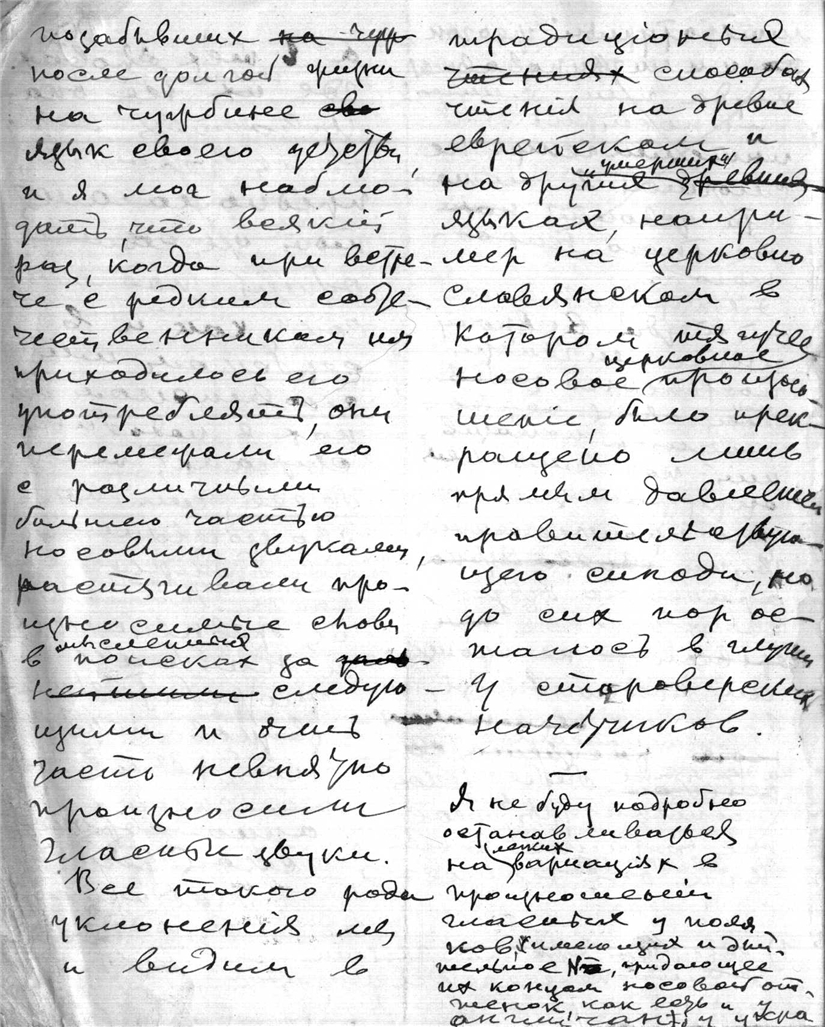 позабывших на чуж
после долгой жизни
на чужбине сво
язык своего детства,
и я мог наблю-
дать, что всякий
раз, когда при встре-
че с редким собте-
чественником им
приходилось его
употреблять, они
перемежали его
с различными
большею частью
носовыми звуками,
растягивали про-
износимые слова
в мысленных
поисках за
следую-
щими и очень
часть невнятно
произносили
гласные звуки.
Все такого рода
уклоненія мы
и видим в
традиціонных
чтениях способах
чтенія на древне
еврейском и
на других "умерших" древних
языках, напри-
мер на церковно
славянском в
котором тягучее
церковное
носовое произно-
шеніе, было прек-
ращено лишь
прямым давлением
правительствую-
щего синода, но
до сих пор ос-
талось в глуши
у староверских
начотчиков.
Я не буду подробно
останавливаться
на легких вариаціях в
произношеніи
гласных у поля
ков, имеющих и
, придающее
их концам носовой от-
тенок как есть и у
англичан, и у